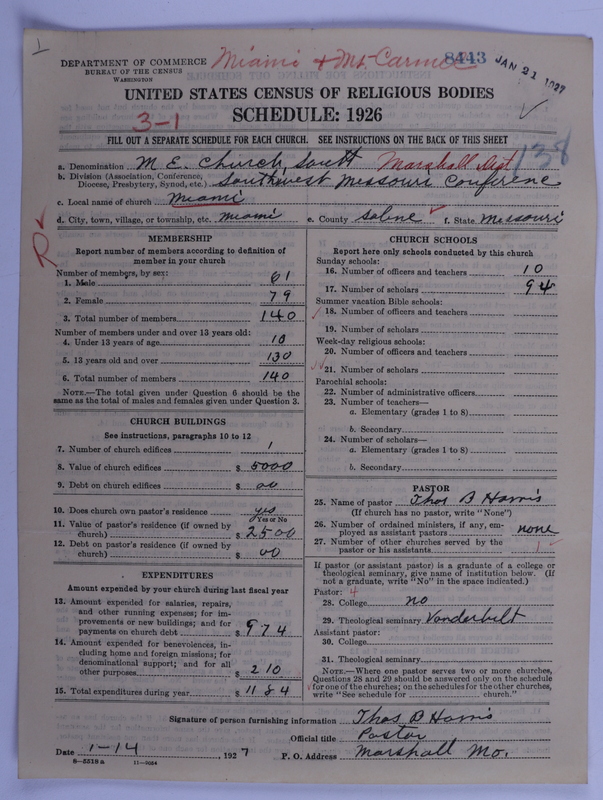 1
DEPARTMENT OF COMMERCE
BUREAU OF THE CENSUS
WASHINGTON
Miami & Mt Carmel
8443
JAN 21 1927
UNITED STATES CENSUS OF RELIGIOUS BODIES
SCHEDULE: 1926
3-1
FILL OUT A SEPARATE SCHEDULE FOR EACH CHURCH. SEE INSTRUCTIONS ON THE BACK OF THIS SHEET
138
a. Denomination M E. Church, South Marshall Dist
b. Division (Association, Conference, Diocese, Presbytery, Synod, etc.) Southwest Missouri Conference
c. Local name of church Miami
d. City, town, village, or township, etc. Miami e. County Saline f. State Missouri
R
MEMBERSHIP
Report number of members according to definition of
member in your church
Number of members, by sex:
1. Male 61
2. Female 79
3. Total number of members 140
Number of members under and over 13 years old:
4. Under 13 years of age 10
5. 13 years old and over 130
6. Total number of members 140
NOTE.—The total given under Question 6 should be the
same as the total of males and females given under Question 3.
CHURCH BUILDINGS
See instructions, paragraphs 10 to 12
7. Number of church edifices 1
8. Value of church edifices $ 5000
9. Debt on church edifices $ 00
10. Does church own pastor's residence yes
Yes or No
11. Value of pastor's residence (if owned by
church) $ 2500
12. Debt on pastor's residence (if owned by
church) $ 00
EXPENDITURES
Amount expended by your church during last fiscal year
13. Amount expended for salaries, repairs,
and other running expenses; for im-
provements or new buildings; and for
payments on church debt $ 974
14. Amount expended for benevolences, in-
cluding home and foreign missions; for
denominational support; and for all
other purposes $ 210
15. Total expenditures during year $ 1184
CHURCH SCHOOLS
Report here only schools conducted by this church
Sunday schools:
16. Number of officers and teachers 10
17. Number of scholars 94
Summer vacation Bible schools:
18. Number of officers and teachers
19. Number of scholars
Week-day religious schools:
20. Number of officers and teachers
21. Number of scholars
Parochial schools:
22. Number of administrative officers
23. Number of teachers—
a. Elementary (grades 1 to 8)
b. Secondary
24. Number of scholars—
a. Elementary (grades 1 to 8)
b. Secondary
PASTOR
25. Name of pastor Thos B Harris
(If church has no pastor, write "None")
26. Number of ordained ministers, if any, em-
ployed as assistant pastors none
27. Number of other churches served by the
pastor or his assistants 1
If pastor (or assistant pastor) is a graduate of a college or
theological seminary, give name of institution below. (If
not a graduate, write "No" in the space indicated.)
Pastor: 4
28. College no
29. Theological seminary Vanderbilt
Assistant pastor:
30. College
31. Theological seminary
NOTE.—Where one pastor serves two or more churches,
Questions 28 and 29 should be answered only on the schedule
for one of the churches; on the schedules for the other churches,
write "See schedule for church."
Signature of person furnishing information Thos B Harris
Official title Pastor
Date 1-14, 1927 P. O. Address Marshall Mo.
8—5519 a 11—9684